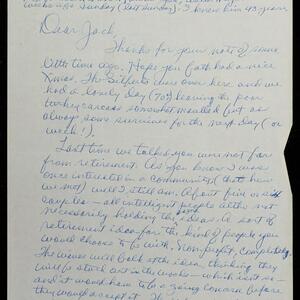 weeks ago Sunday (last Sunday). I knew him 43 years
Dear Jack,
Thanks for your note of some
little time ago. Hope you both had a nice
Xmas. The were over here and we
had a lovely day (70°) leaving the poor
turkey carcass somewhat mauled but as
always some survives for the next day (or
week!).
Last time we talked you were not far
from retirement. As you know I was
once interested in a community (that know
we not) well I still am. About five or six
couples – all intelligent people altho not
necessarily holding the same ideas. A sort of
retirement idea for the kind of people you
would choose to be with, Non profit, completely.
The wives will balk at the idea thinking they
will be stuck out in the – which isn't so –
and it would have to be a going concern before
they would accept it.